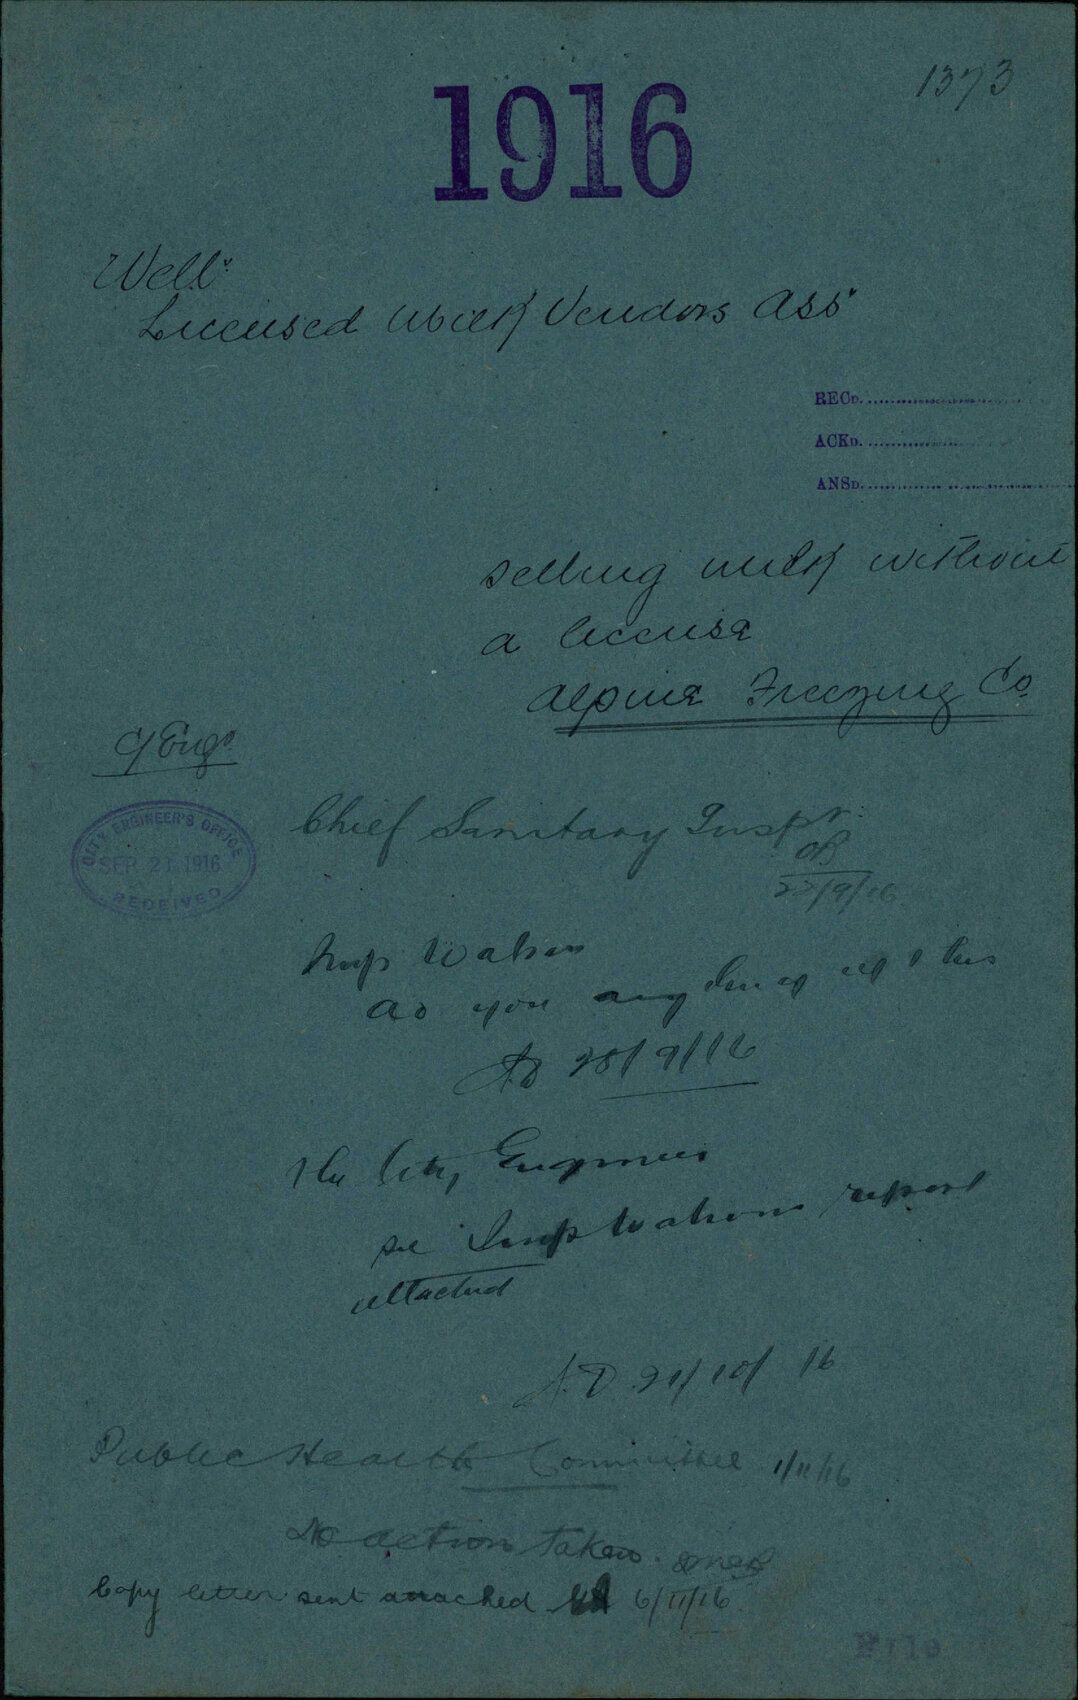 1373
1916
Well:
Licensed Milk Vendors Ass
RECD.
ACKD.
ANSD.
selling milk without
a license
Alpine Freezing Co
C/Engr
CITY ENGINEER'S OFFICE
SEP 21 1916
RECEIVED
Chief Sanitary Inspr.
22/9/16
Insp Watson
do you any thing of this
AD 28/9/16
The City Engineer
see Insp Watsons report
attached
A.D 21/10/16
Public Health Committee 1/11/16
No action taken.
Copy letter sent attached 6/11/16
File